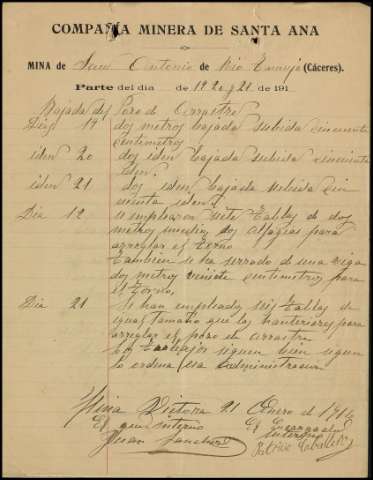 COMPAÑIA MINERA DE SANTA ANA
MINA de San Antonio de Rio Tamuja (Cáceres).
Parte del dia de 19 20 y 21 de 191
Bajada del Pozo de Arrastre
Dia 19 dos metros bajada subida cincuenta
centimetros
iden 20 dos iden bajada subida cincuenta
iden
iden 21 dos iden bajada subida cin
cuenta iden
Dia 12 se emplearon siete tablas de dos
metros y medio, dos alfagias para
arreglar el torno
tambien se ha serrado de una viga
dos metros veinte centimetros para
el torno,
Dia 21 Se han empleado seis tablas de
igual tamaño que las hanteriores para
arreglar el pozo de arrastre
Los trabajos siguen bien segun
lo ordena la administracion
Mina Victoria 21 Enero de 1914
El Encargado
interino
Juan Sanchez